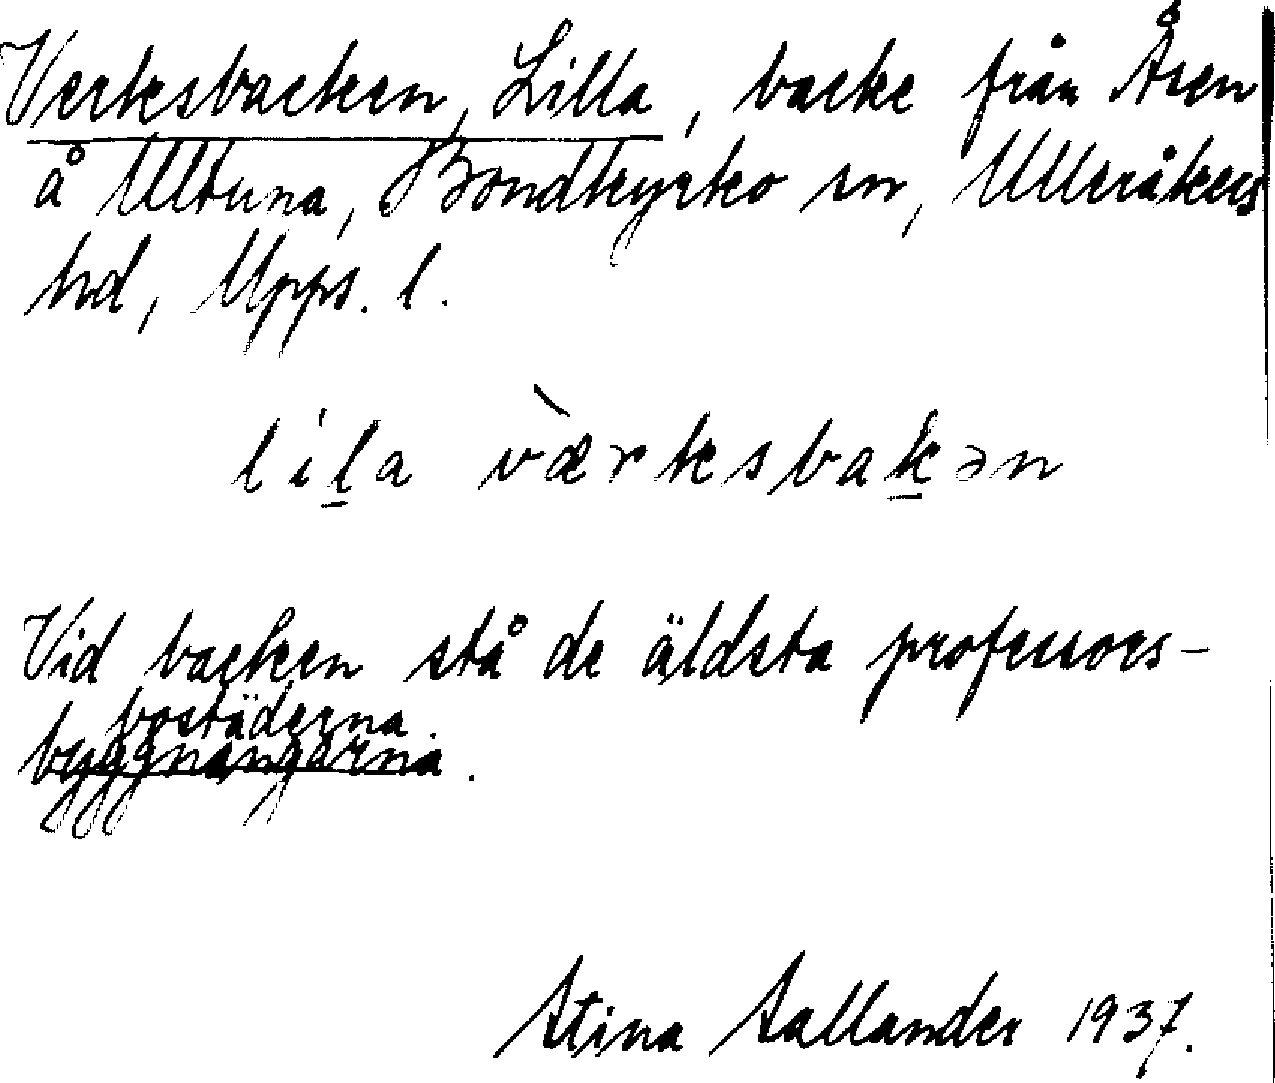 Verksbacken, Lilla, backe från Åsen
å Ultuna, Bondkyrko sn, Ulleråkers
hd, Upps. l.
lil̠a værksbak̠ən
Vid backen stå de äldsta professors-
bostäderna.
byggnangarna.
Stina Sallander 1937.